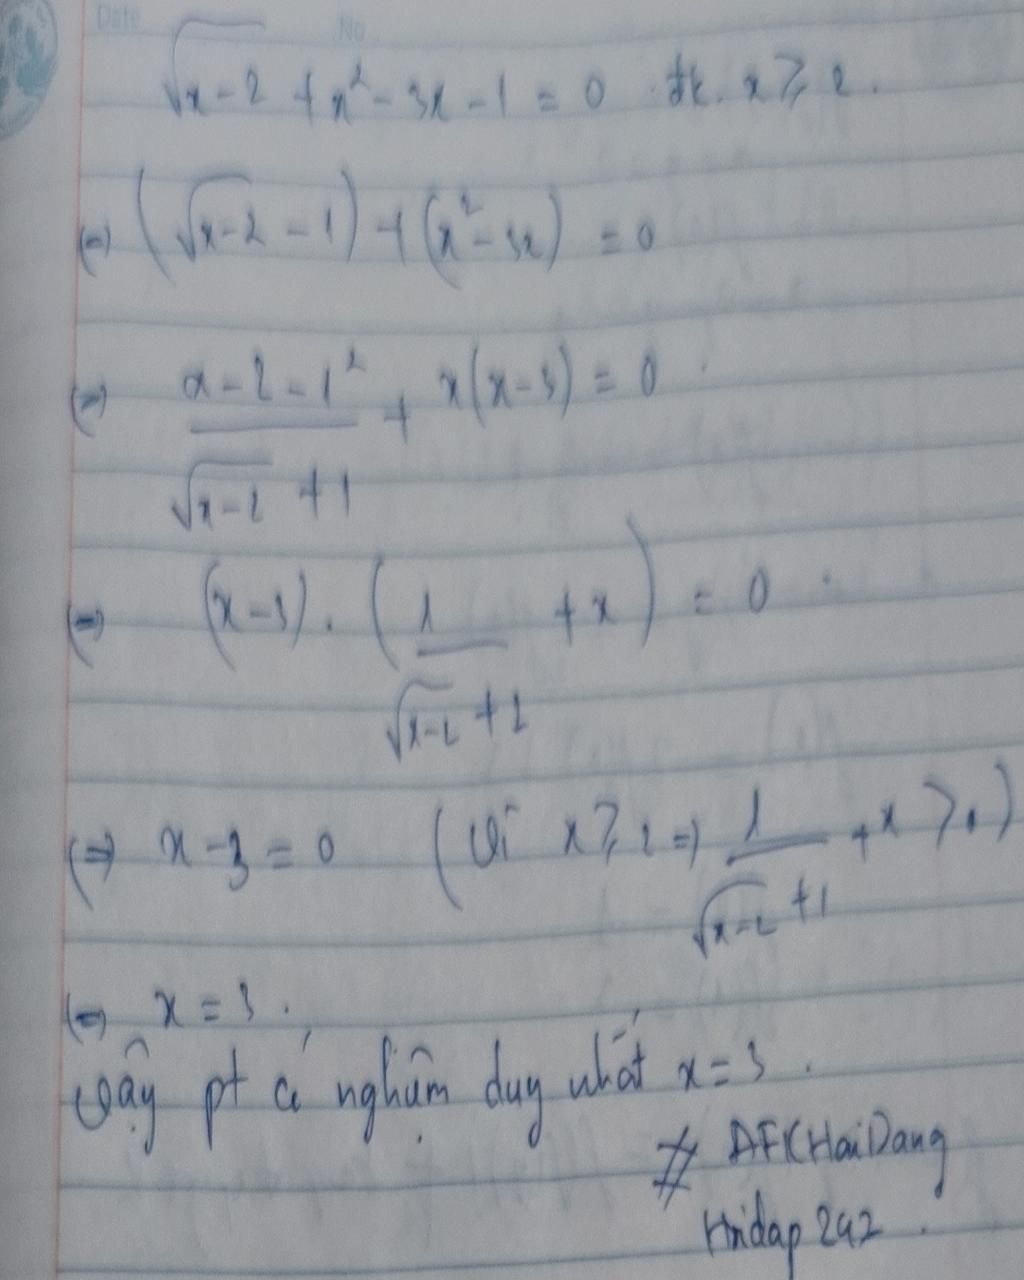 Date No
√(x-2) + x² - 3x - 1 = 0 đk. x ≥ 2.
(=) (√(x-2) - 1) + (x² - 3x) = 0
(=) (x-2-1²)/(√(x-2) + 1) + x(x-3) = 0.
(=) (x-3).(1/(√(x-2) + 1) + x) = 0.
(=) x - 3 = 0 (Vì x ≥ 2 => 1/(√(x-2) + 1) + x > 0)
(=) x = 3.
Vậy pt có nghiệm duy nhất x = 3.
# AFKHaiDang
Hoidap 247.